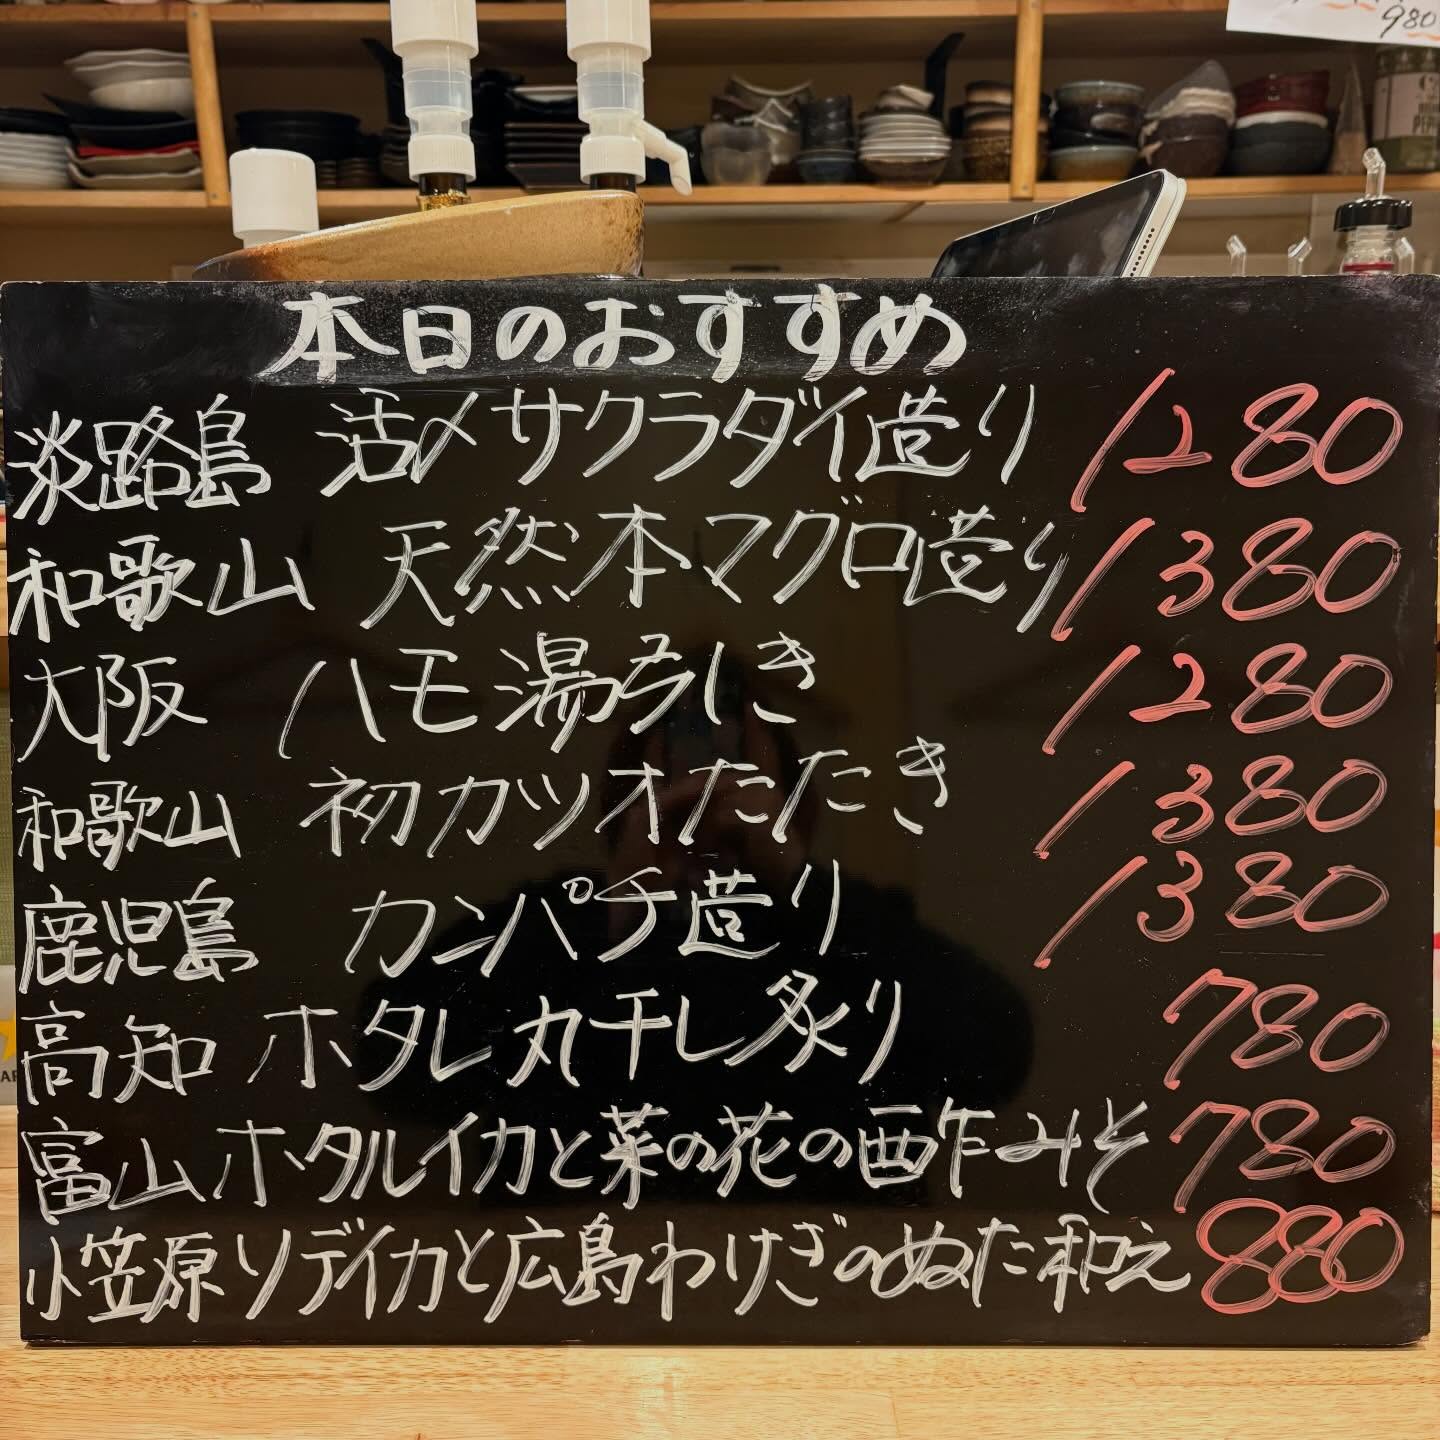 980
本日のおすすめ
淡路島 活〆サクラダイ造り 1280
和歌山 天然本マグロ造り 1380
大阪 ハモ湯引き 1280
和歌山 初カツオたたき 1380
鹿児島 カンパチ造り 1380
高知 ホタレ丸干し炙り 780
富山 ホタルイカと菜の花の酢みそ 780
小笠原 ソデイカと広島わけぎのぬた和え 880